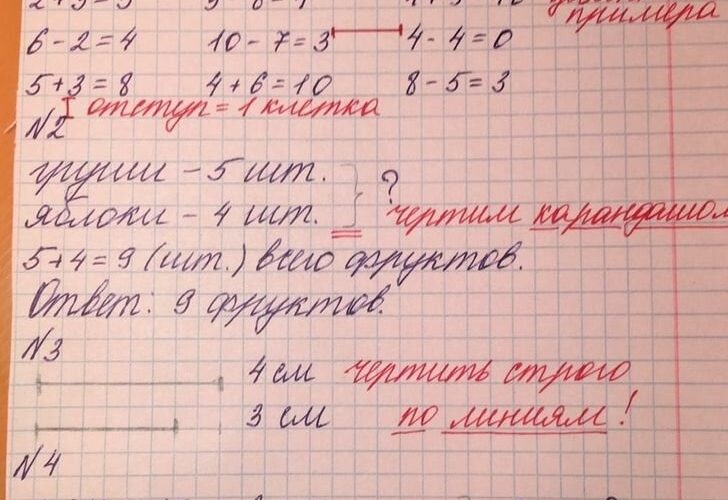 примера
6 - 2 = 4 10 - 7 = 3 4 - 4 = 0
5 + 3 = 8 4 + 6 = 10 8 - 5 = 3
отступ = 1 клетка
N2
груши - 5 шт.
?
яблоки - 4 шт. чертим карандашом
5 + 4 = 9 (шт.) всего фруктов.
Ответ: 9 фруктов.
N3
4 см чертить строго
3 см по линиям!
N4